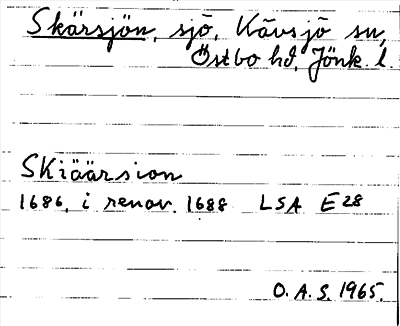 Skärsjön, sjö, Kävsjö sn,
Östbo hd, Jönk. l
Skiäärsion
1686, i renov. 1688 LSA E28
O.A.S. 1965.